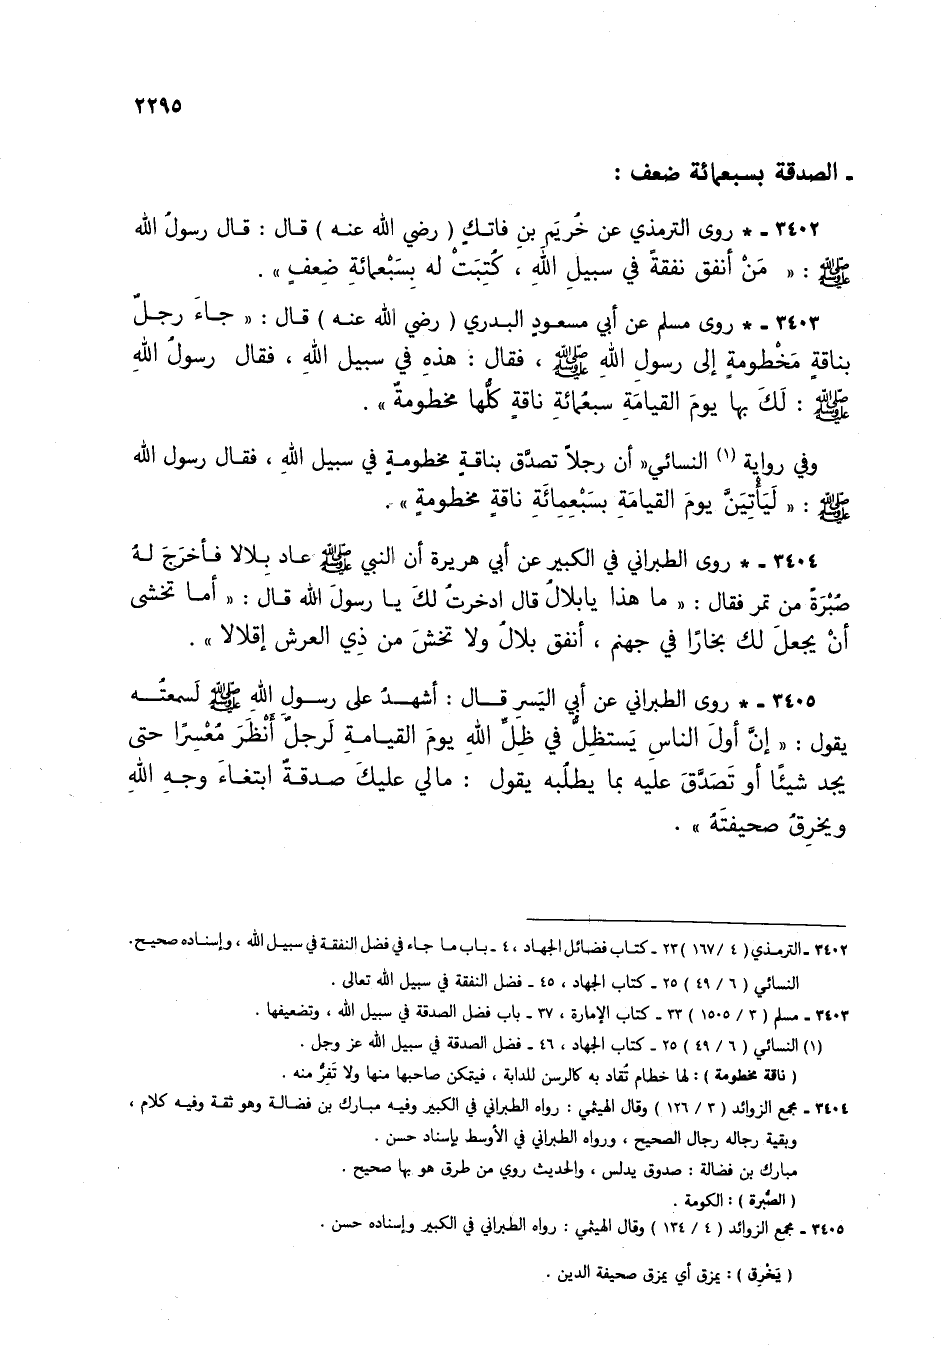 ٢٢٩٥
ـ الصدقة بسبعمائة ضعف :
٣٤٠٢ ـ * روى الترمذي عن خُرَيَم بنِ فاتكٍ ( رضي الله عنه ) قال : قال رسولُ الله
ﷺ : « مَنْ أنفق نفقةً في سبيل اللهِ ، كُتِبَتْ له بِسَبْعمائةِ ضعفٍ » .
٣٤٠٣ ـ * روى مسلم عن أبي مسعودٍ البدري ( رضي الله عنه ) قال : « جاءَ رجلٌ
بناقةٍ مَخْطومةٍ إلى رسولِ اللهِ ﷺ ، فقال : هذهِ في سبيل اللهِ ، فقال رسولُ اللهِ
ﷺ : لَكَ بها يومَ القيامَةِ سبعُمائةِ ناقةٍ كلُّها مخطومةٌ » .
وفي رواية (١) النسائي « أن رجلاً تصدَّق بناقةٍ مخطومةٍ في سبيل اللهِ ، فقال رسول الله
ﷺ : « لَيَأْتِيَنَّ يومَ القيامَةِ بسَبْعِمِائَةِ ناقةٍ مخطومةٍ » .
٣٤٠٤ ـ * روى الطبراني في الكبير عن أبي هريرة أن النبي ﷺ عاد بِلالا فأخرَجَ لهُ
صُبْرَةً من تمرٍ فقال : « ما هذا يابلالُ قال ادخرتُ لكَ يا رسولَ الله قال : « أما تخشى
أنْ يجعلَ لك بخارًا في جهنم ، أنفق بلالُ ولا تخشَ من ذِي العرشِ إقلالا » .
٣٤٠٥ ـ * روى الطبراني عن أبي اليَسرِ قال : أشهدُ على رسولِ اللهِ ﷺ لَسمعتُه
يقول : « إنَّ أولَ الناسِ يَستظِلُّ في ظِلِّ اللهِ يومَ القيامةِ لَرجلٌ أَنْظَرَ مُعْسِرًا حتى
يجد شيئًا أو تَصَدَّقَ عليه بما يطلُبه يقول : مالي عليكَ صدقةٌ ابتغاءَ وجهِ اللهِ
ويخرِقُ صحيفتَهُ » .
٣٤٠٢ ـ الترمذي ( ٤ / ١٦٧ ) ٢٣ ـ كتاب فضائل الجهاد ، ٤ ـ باب ما جاء في فضل النفقة في سبيل الله ، وإسناده صحيح .
النسائي ( ٦ / ٤٩ ) ٢٥ ـ كتاب الجهاد ، ٤٥ ـ فضل النفقة في سبيل الله تعالى .
٣٤٠٣ ـ مسلم ( ٣ / ١٥٠٥ ) ٣٣ ـ كتاب الإمارة ، ٣٧ ـ باب فضل الصدقة في سبيل الله ، وتضعيفها .
(١) النسائي ( ٦ / ٤٩ ) ٢٥ ـ كتاب الجهاد ، ٤٦ ـ فضل الصدقة في سبيل الله عز وجل .
( ناقة مخطومة ) : لها خطام تُقاد به كالرسن للدابة ، فيتمكن صاحبها منها ولا تَفِرُّ منه .
٣٤٠٤ ـ مجمع الزوائد ( ٣ / ١٢٦ ) وقال الهيثمي : رواه الطبراني في الكبير وفيه مبارك بن فضالة وهو ثقة وفيه كلام ،
وبقية رجاله رجال الصحيح ، ورواه الطبراني في الأوسط بإسناد حسن .
مبارك بن فضالة : صدوق يدلس ، والحديث روي من طرق هو بها صحيح .
( الصُّبرة ) : الكومة .
٣٤٠٥ ـ مجمع الزوائد ( ٤ / ١٣٤ ) وقال الهيثمي : رواه الطبراني في الكبير وإسناده حسن .
( يَخْرِق ) : يمزق أي يمزق صحيفة الدين .